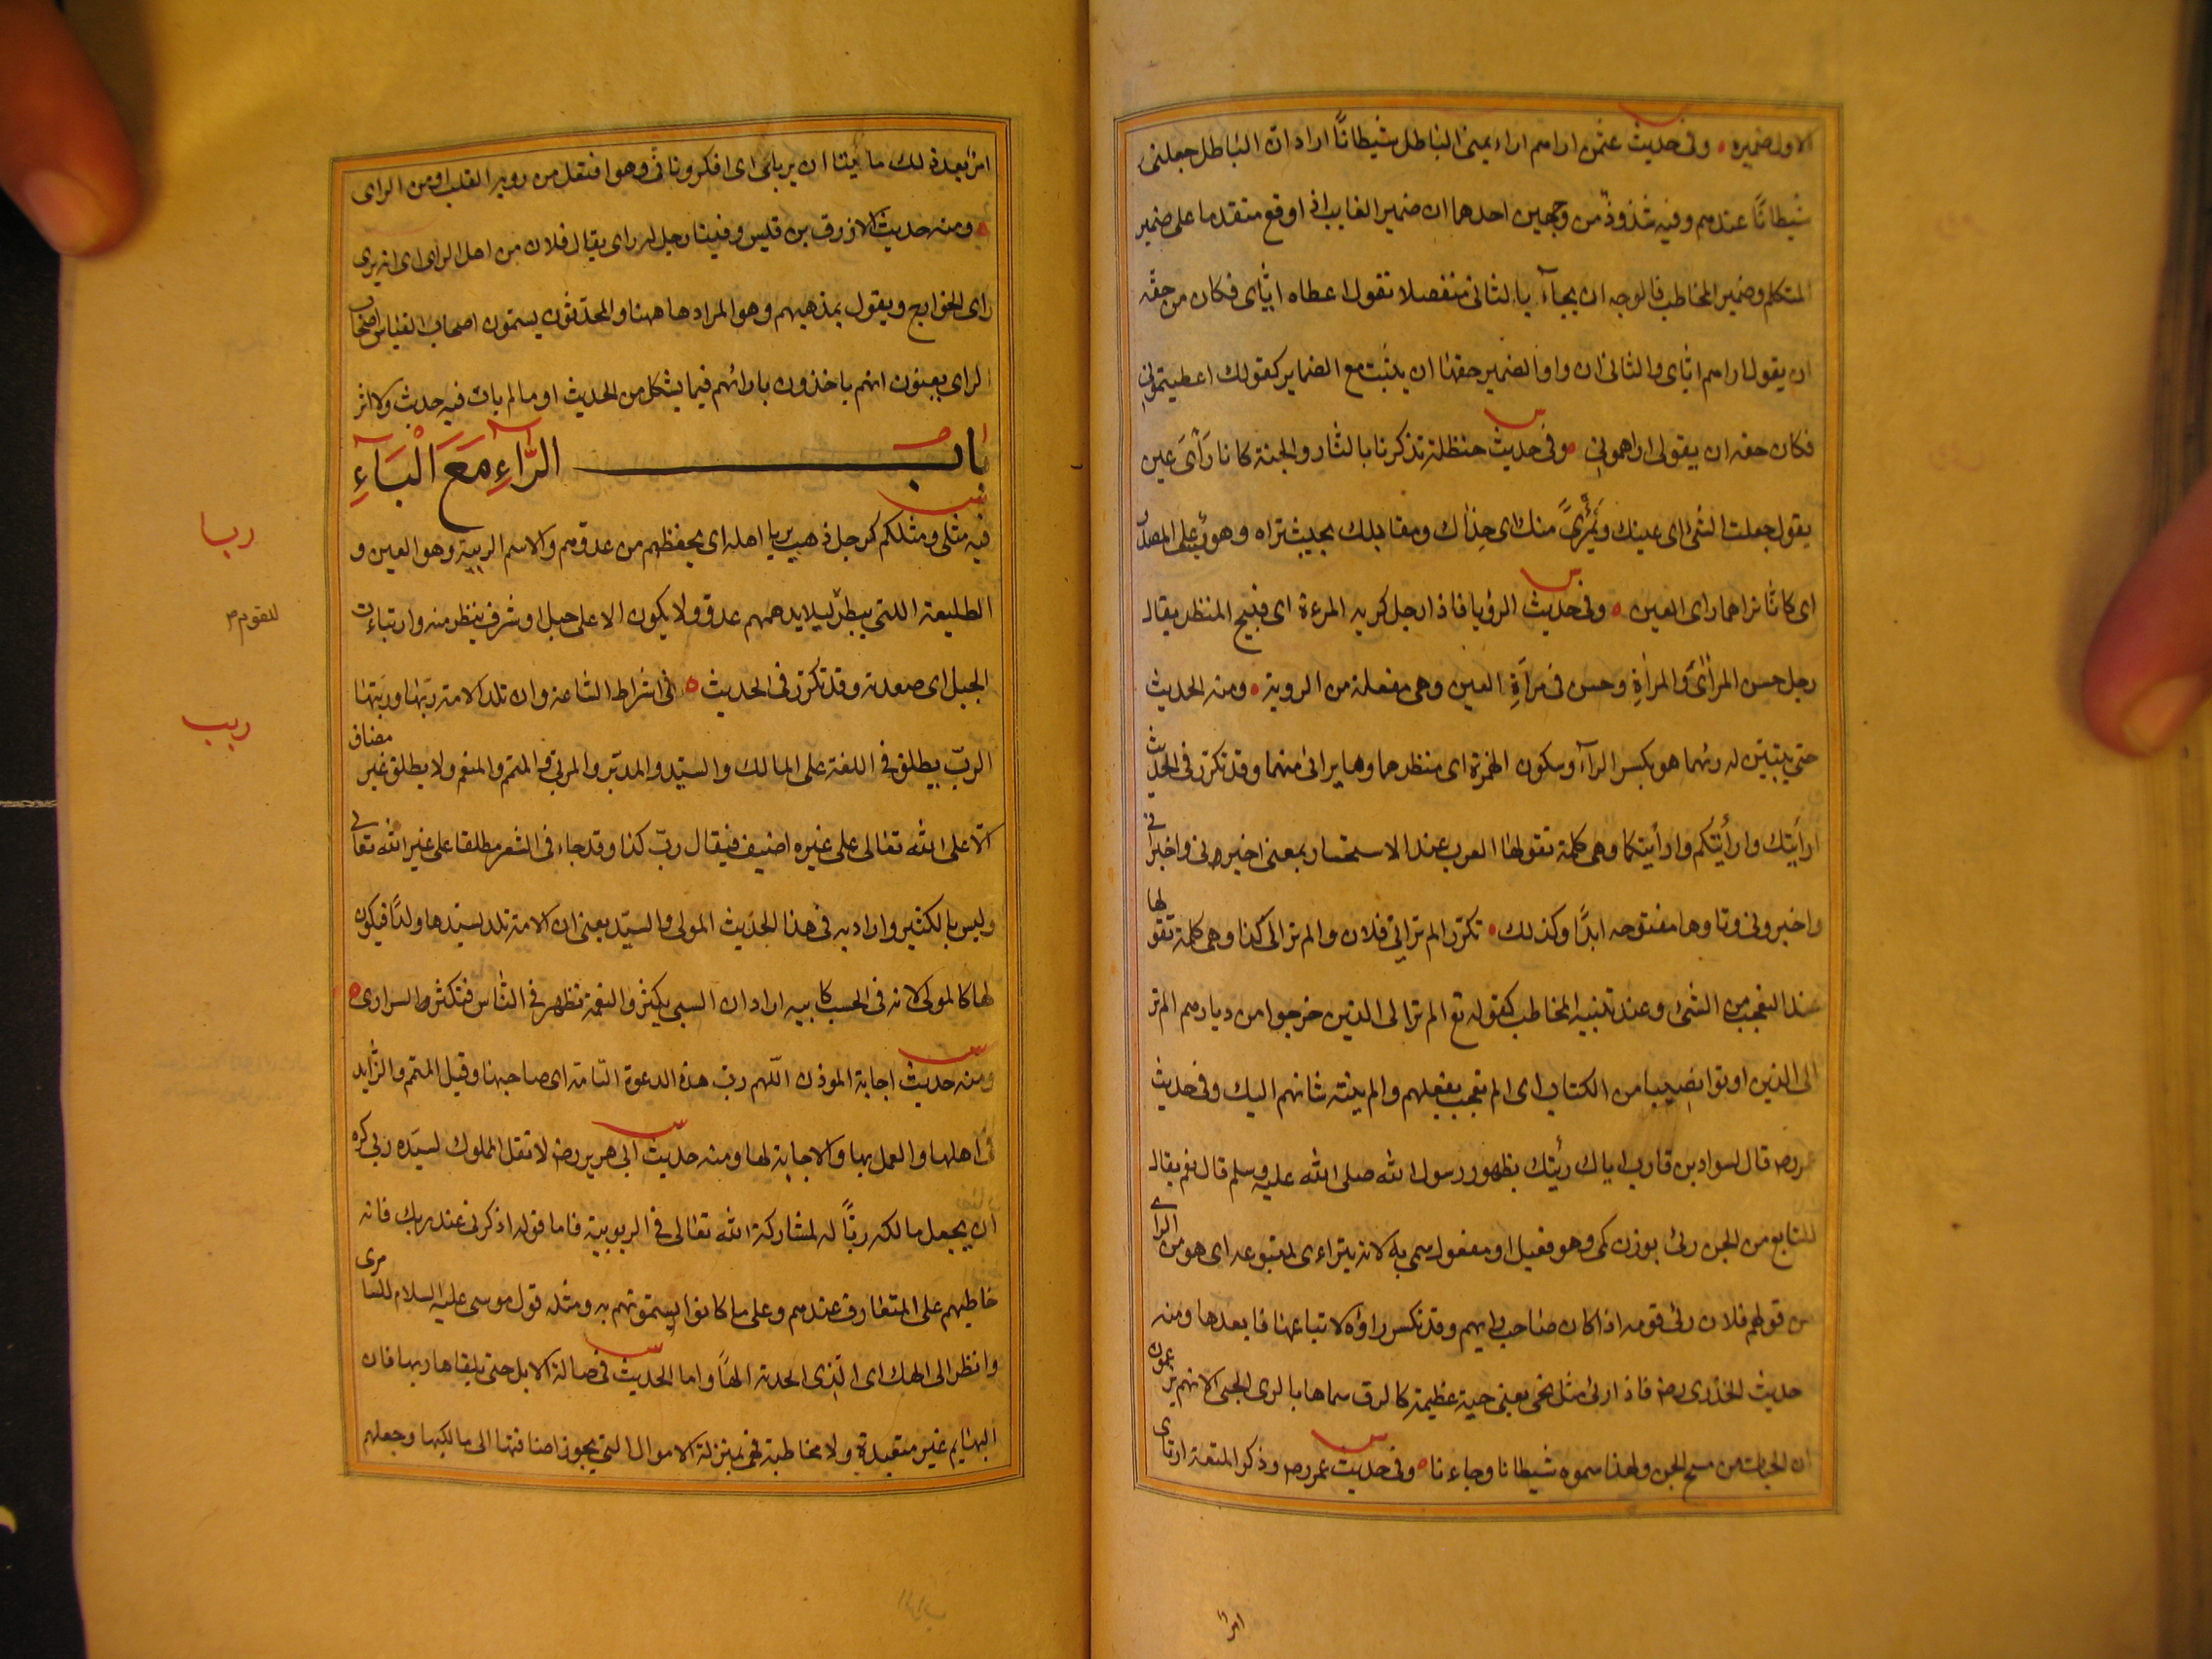 الاول ضميره ه وفى حديث عثمن اراهم اراهمنى الباطل شيطانًا اراد ان الباطل جعلنى
شيطانًا عندهم وفيه شذوذ من وجهين احدهما ان ضمير الغايب اذا وقع متقدما على ضمير
المتكلم وضمير المخاطب فالوجه ان يجآء بالثانى منفصلا تقول اعطاه اياى فكان من حقه
ان يقول اراهم اياى والثانى ان واو الضمير حقها ان يثبت مع الضماير كقولك اعطيتمونى
فكان حقه ان يقول اراهمونى ه وفى حديث حنظلة تذكرنا بالنار والجنة كانا رَأىَ عين
يقول جعلت الشئ راى عينك وبمَرْأىً منك اى حذاك ومقابلك بحيث تراه وهو على المصدر
اى كانا نراهما راى العين ه وفى حديث الرؤيا فاذا رجل كريه المرءة اى قبيح المنظر يقال
رجل حسن المرأى والمرأة وحسن فى مرآة العين وهى مفعلة من الروية ه ومنه الحديث
حتى يتبين له رئهما هو بكسر الرآء وسكون الهمزة اى منظرهما وما يرى منهما وقد تكرر فى الحديث
ارأيتك وارأيتكم وارأيتكما وهى كلمة تقولها العرب عند الاستخبار بمعنى اخبرنى واخبرانى
واخبرونى وتاوها مفتوحه ابدًا وكذلك ه تكرر الم تر الى فلان والم تر الى كذا وهى كلمة تقولها
عند التعجب من الشئ وعند تنبيه المخاطب كقوله تع الم تر الى الذين خرجوا من ديارهم الم تر
الى الذين اوتوا نصيبا من الكتاب اى الم تعجب بفعلهم والم ينته شانهم اليك وفى حديث
عمر رضه قال لسواد بن قارب اياك رئيك بظهور رسول الله صلى الله عليه وسلم قال نعم يقال
للتابع من الجن رئى بوزن كمى وهو فعيل او مفعول سمى به لانه يتراءى لمتبوعه اى هو من الراى
من قولهم فلان رئى قومه اذا كان صاحب رايهم وقد تكسر راؤه لاتباعها ما بعدها ومنه
حديث الخدرى رضه فاذا رئى مثل نحى يعنى حية عظيمة كالزق سماها بالرى الجنى لانهم يزعمون
ان الحيات من مسخ الجن ولهذا سموه شيطانا وجاءنا ه وفى حديث عمر رضه وذكر المتعة ارتاى
امرأ
امرأ بعد ذلك ما شيئا ان يرباى اى افكر وتانى وهو افتعل من روية القلب او من الراى
ه ومنه حديث الازرق بن قليس وفينا رجل له راى يقال فلان من اهل الراى اى انه يرى
راى الخوارج ويقول بمذهبهم وهو المراد هاهنا والمحدثون يسمون اصحاب القياس اصحاب
الراى يعنون انهم ياخذون بارائهم فيما يشكل من الحديث او ما لم يات فيه حديث ولا اثر
باب الرَّآءِ مَعَ الْبَآءِ
ربا
فيه مثلى ومثلكم كرجل ذهب يربا اهله اى يحفظهم من عدوهم والاسم الربيئة وهو العين و
للقوم
الطليعة التى ينظر ليلا يدهمهم عدو ولا يكون الا على جبل او شرف ينظر منه وارتبات
الجبل اى صعدته وقد تكرر فى الحديث ه فى اشراط الساعة وان تلد الامة ربها وربتها
ربب
الرب يطلق فى اللغة على المالك والسيد والمدبر والمربى والمتمم والمنعم ولا يطلق غير مضاف
الا على الله تعالى على غيره اضيف فيقال رب كذا وقد جاء فى الشعر مطلقا على غير الله تعالى
وليس بالكثير واراد به فى هذا الحديث المولى والسيد يعنى ان الامة تلد لسيدها ولدًا فيكون
لها كالمولى لانه فى الحسب كابيه اراد ان السبى يكثر والنعمة تظهر فى الناس فتكثر السرارى ه
ومنه حديث اجابة الموذن اللهم رب هذه الدعوة التامة اى صاحبها وقيل المتمم والزايد
فى اهلها والعمل بها والاجابة لها ومنه حديث ابى هريرة رضه لا تقل المملوك لسيده ربى كره
ان يجعل مالكه ربًّا له لمشاركة الله تعالى فى الربوبية فاما قوله اذكرنى عند ربك فانه
خاطبهم على المتعارف عندهم وعلى ما كانوا يسمونهم به ومثله قول موسى عليه السلام للسامرى
وانظر الى الهك اى الذى اتخذته الهًا واما الحديث فى ضالة الابل حتى يلقاها ربها فان
البهايم غير متعبدة ولا مخاطبة فهى بمنزلة الاموال التى يجوز اضافتها الى مالكيها وجعلهم